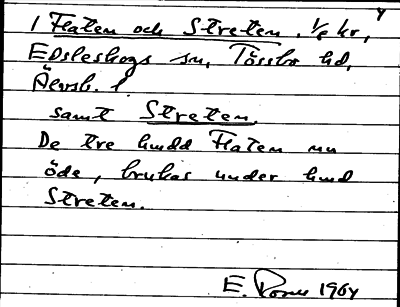 1 Flaten och Streten. 1/8 kr,
Edsleskogs sn, Tössbo hd,
Älvsb. l
samt Streten.
De tre hmdd Flaten nu
öde, brukas under hmd
Streten.
E. 1964